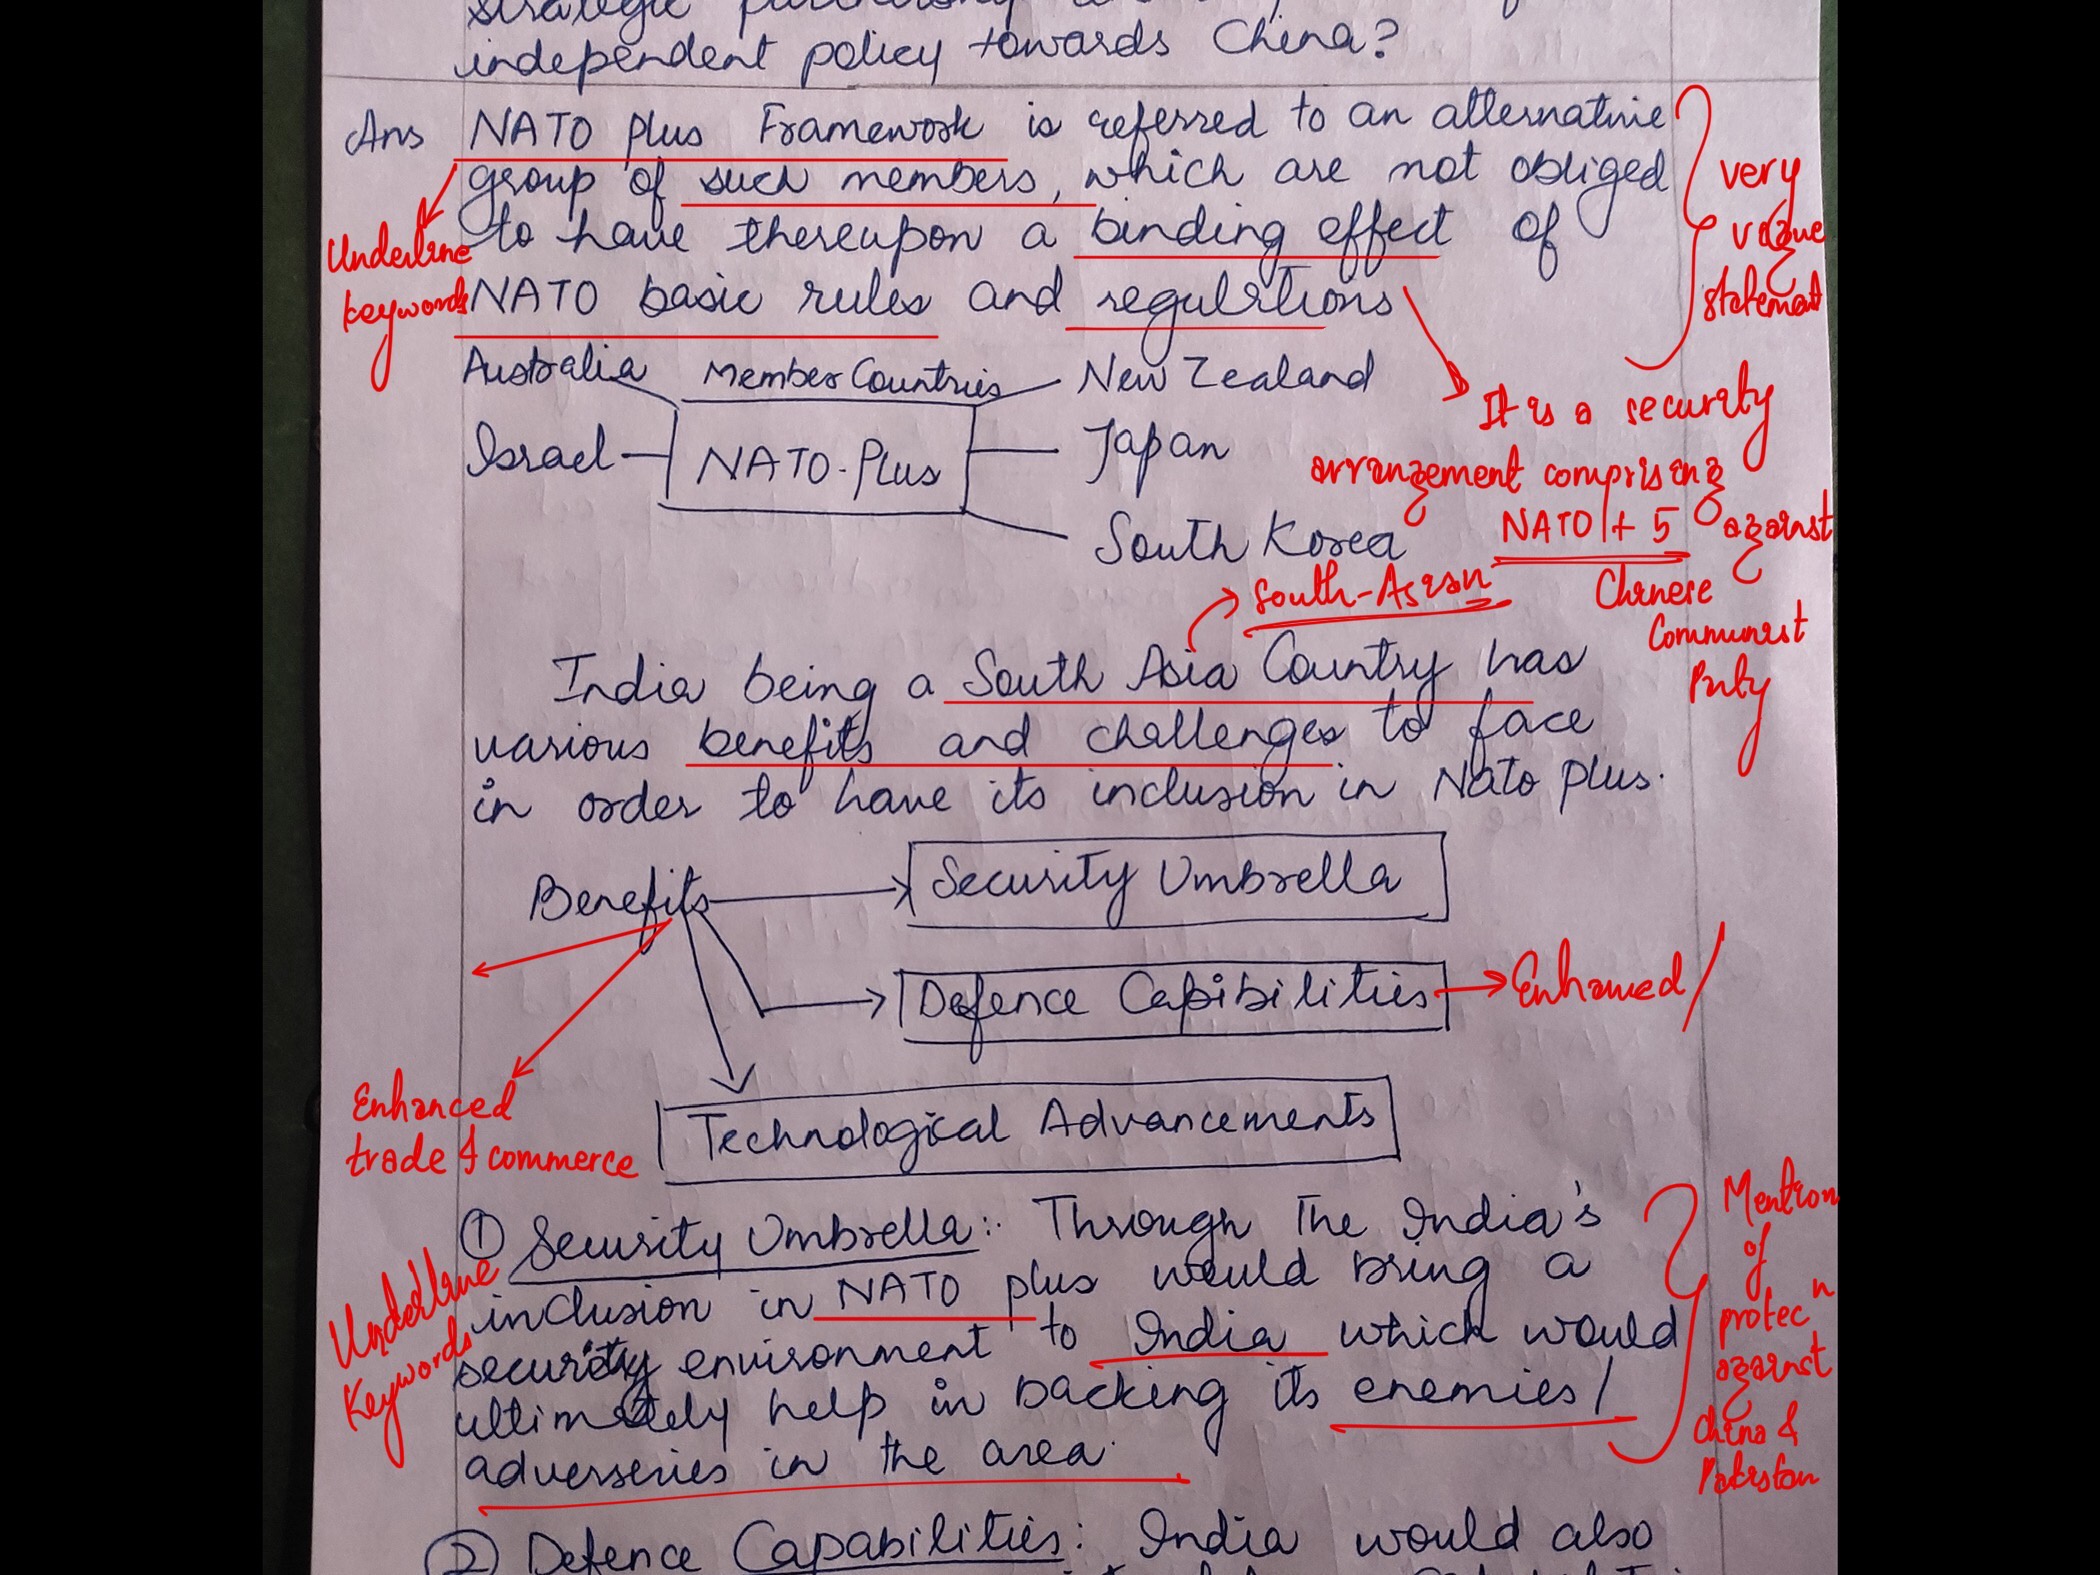 strategic partnership
independent policy towards China?
Ans NATO plus Framework is referred to an alternative
group of such members, which are not obliged
to have thereupon a binding effect of
NATO basic rules and regulations
Underline
keywords
very
vague
statement
Australia Member Countries New Zealand
Israel NATO-Plus Japan
South Korea
It is a security
arrangement comprising
NATO + 5 against
Chinese
Communist
Party
South-Asian
India being a South Asia Country has
various benefits and challenges to face
in order to have its inclusion in Nato plus.
Benefits Security Umbrella
Defence Capibilities Enhanced
Technological Advancements
Enhanced
trade & commerce
① Security Umbrella:. Through The India's
inclusion in NATO plus would bring a
security environment to India which would
ultimately help in backing its enemies/
adverseries in the area.
Underline
Keywords
Mention
of
protecn
against
China &
Pakistan
② Defence Capabilities: India would also